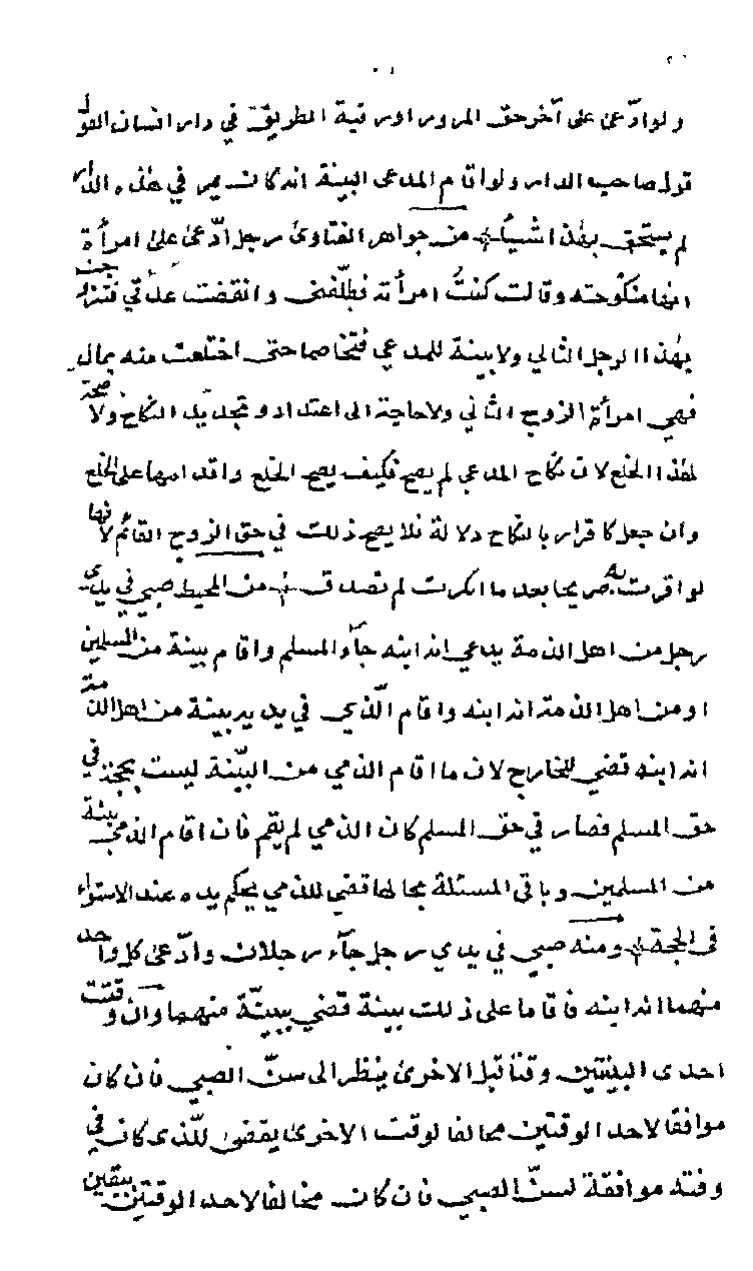 ولو ادّعى على آخر حق المرور او رقبة الطريق في دار انسان القول
قول صاحب الدار ولو اقام المدعى البينة انه كان يمر في هذه الدار
لم يستحق بهذا شيأ من جواهر الفتاوى رجل ادّعى على امرأة
انها منكوحته وقالت كنتُ امرأته فطلّقنى وانقضت عدّتي فتزوجت
بهذا الرجل الثاني ولا بينة للمدعي فتخاصما حتى اختلعت منه بمال
فهي امرأة الزوج الثاني ولا حاجة الى اعتداد وتجديد النكاح ولا صحة
لهذا الخلع لان نكاح المدعي لم يصح فكيف يصح الخلع واقدامها على الخلع
وان جعل كاقرار بالنكاح دلالة فلا يصح ذلك في حق الزوج القائم لانها
لو اقرت به صريحا بعد ما انكرت لم تصدق من المحيط صبي في يدى
رجل من اهل الذمة يدعي انه ابنه جآء المسلم واقام بينة من المسلمين
او من اهل الذمة انه ابنه واقام الّذي في يديه بينة من اهل الذمة
انه ابنه قضي للخارج لان ما اقام الذمي من البيّنة ليست بحجة في
حق المسلم فصار في حق المسلم كان الذمي لم يقم فان اقام الذمي بينة
من المسلمين وباقى المسئلة بحالها قضي للذمي بحكم يده عند الاستواء
فى الحجة ومنه صبي في يدي رجل جآء رجلان وادّعى كل واحد
منهما انه ابنه فاقاما على ذلك بينة قضي ببيّنة منهما وان وقتت
احدى البينتين وقتا قبل الاخرى ينظر الى سنّ الصبي فان كان
موافقا لاحد الوقتين مخالفا لوقت الاخرى يقضى للّذى كان في
وقته موافقة لسنّ الصبي فان كان مخالفا لاحد الوقتين بيقين